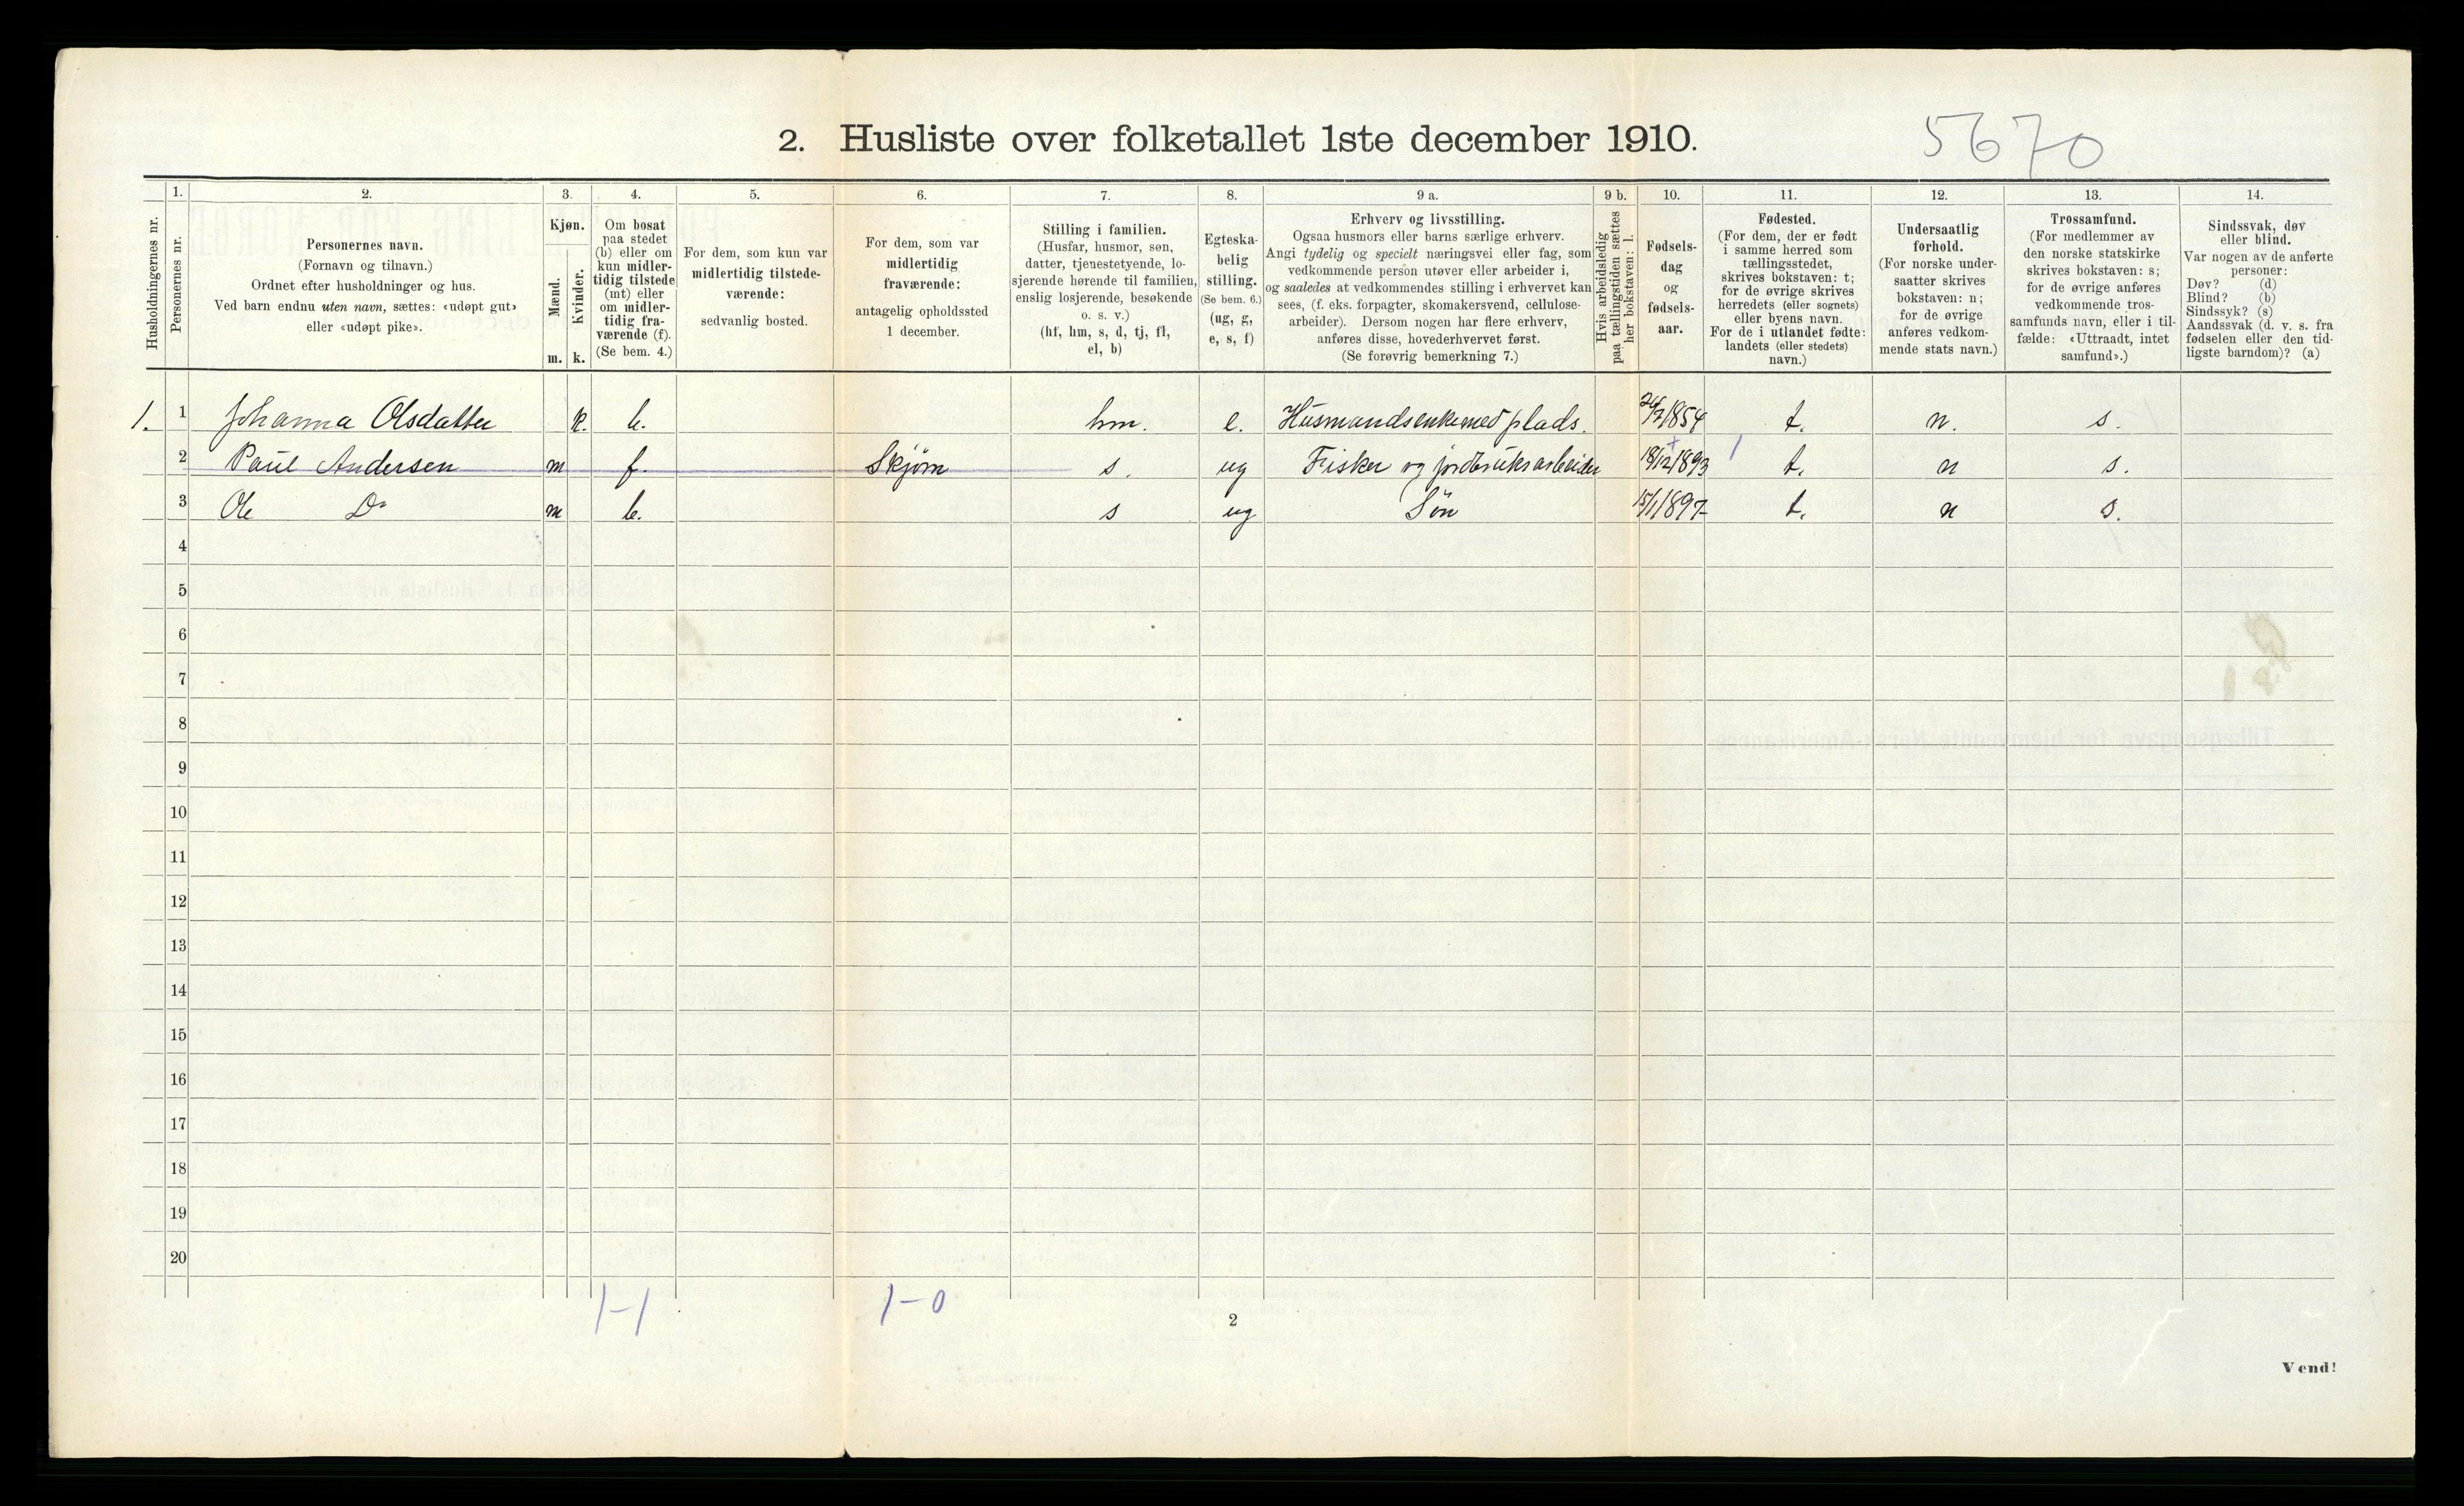 2. Husliste over folketallet 1ste december 1910.
5670
1.
2.
3.
4.
5.
6.
7.
8.
9 a.
9 b.
10.
11.
12.
13.
14.
Husholdningernes nr.
Personernes nr.
Personernes navn.
(Fornavn og tilnavn.)
Ordnet efter husholdninger og hus.
Ved barn endnu uten navn, sættes: «udøpt gut»
eller «udøpt pike».
Kjøn.
Mænd.
Kvinder.
m. k.
Om bosat
paa stedet
(b) eller om
kun midler-
tidig tilstede
(mt) eller
om midler-
tidig fra-
værende (f).
(Se bem. 4.)
For dem, som kun var
midlertidig tilstede-
værende:
sedvanlig bosted.
For dem, som var
midlertidig
fraværende:
antagelig opholdssted
1 december.
Stilling i familien.
(Husfar, husmor, søn,
datter, tjenestetyende, lo-
sjerende hørende til familien,
enslig losjerende, besøkende
o. s. v.)
(hf, hm, s, d, tj, fl,
el, b)
Egteska-
belig
stilling.
(Se bem. 6.)
(ug, g,
e, s, f)
Erhverv og livsstilling.
Ogsaa husmors eller barns særlige erhverv.
Angi tydelig og specielt næringsvei eller fag, som
vedkommende person utøver eller arbeider i,
og saaledes at vedkommendes stilling i erhvervet kan
sees, (f. eks. forpagter, skomakersvend, cellulose-
arbeider). Dersom nogen har flere erhverv,
anføres disse, hovederhvervet først.
(Se forøvrig bemerkning 7.)
Hvis arbeidsledig
paa tællingstiden sættes
her bokstaven: l.
Fødsels-
dag
og
fødsels-
aar.
Fødested.
(For dem, der er født
i samme herred som
tællingsstedet,
skrives bokstaven: t;
for de øvrige skrives
herredets (eller sognets)
eller byens navn.
For de i utlandet fødte:
landets (eller stedets)
navn.)
Undersaatlig
forhold.
(For norske under-
saatter skrives
bokstaven: n;
for de øvrige
anføres vedkom-
mende stats navn.)
Trossamfund.
(For medlemmer av
den norske statskirke
skrives bokstaven: s;
for de øvrige anføres
vedkommende tros-
samfunds navn, eller i til-
fælde: «Uttraadt, intet
samfund».)
Sindssvak, døv
eller blind.
Var nogen av de anførte
personer:
Døv? (d)
Blind? (b)
Sindssyk? (s)
Aandssvak (d. v. s. fra
fødselen eller den tid-
ligste barndom)? (a)
1. 1 Johanna Olsdatter k. b. hm. e. Husmandsenke med plads. 1854 t. n. s.
2 Paul Andersen m f. Skjørn s. ug Fisker og jordbruksarbeider 18/12 1893 t. n s.
3 Ole Do m b. s ug Søn 15/1 1897 t. n s.
4
5
6
7
8
9
10
11
12
13
14
15
16
17
18
19
20
1-1
1-0
2
Vend!